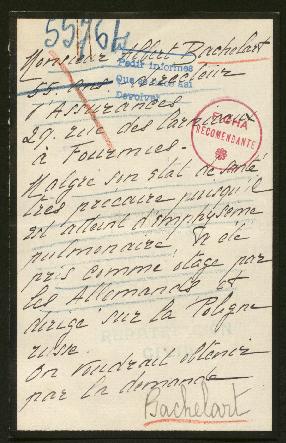 55764
Monsieur Albert Bachelart
Pedir informes
55 ans. Directeur
Que se hace así
Devolver
d'Assurances
29 rue des Carnaux
FICHA
RECOMENDANTE
à Fourmies.
Malgré son état de santé
très précaire puisqu'il
est atteint d'emphysème
pulmonaire, a été
pris comme otage par
les Allemands et
dirigé sur la Pologne
russe.
On voudrait obtenir
par la demande
Bachelart